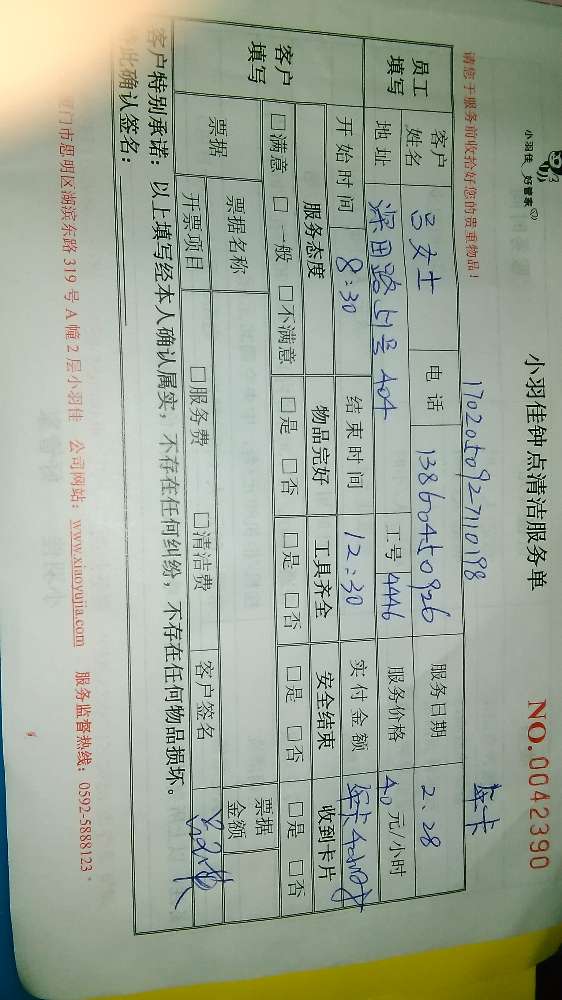 小羽佳 好管家
小羽佳钟点清洁服务单
NO.0042390
请您于服务前收拾好您的贵重物品！
年卡
员工填写
客户姓名 吕女士 电话 13860450926 服务日期 2、28
地址 深田路51号404 工号 4446 服务价格 40元/小时
开始时间 8:30 结束时间 12:30 实付金额 年卡4小时
客户填写
服务态度 物品完好 工具齐全 安全结束 收到卡片
□满意 □一般 □不满意 □是 □否 □是 □否 □是 □否 □是 □否
票据 票据名称 票据金额
开票项目 □服务费 □清洁费 客户签名
客户特别承诺：以上填写经本人确认属实，不存在任何纠纷，不存在任何物品损坏。
此确认签名：
门市思明区湖滨东路319号A幢2层小羽佳 公司网站：www.xiaoyujia.com 服务监督热线：0592-5888123